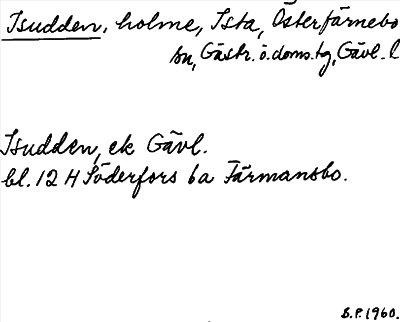 Isudden, holme, Ista, Österfärnebo
sn, Gästr. ö. doms.tg, Gävl. l
Isudden, ek Gävl.
bl. 12 H Söderfors 6a Färmansbo.
S.P. 1960.